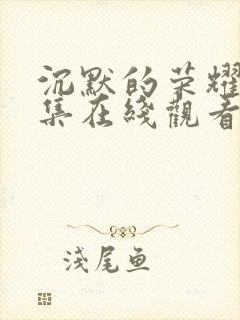 沉默的荣耀
集在綫觀看
淺尾鱼